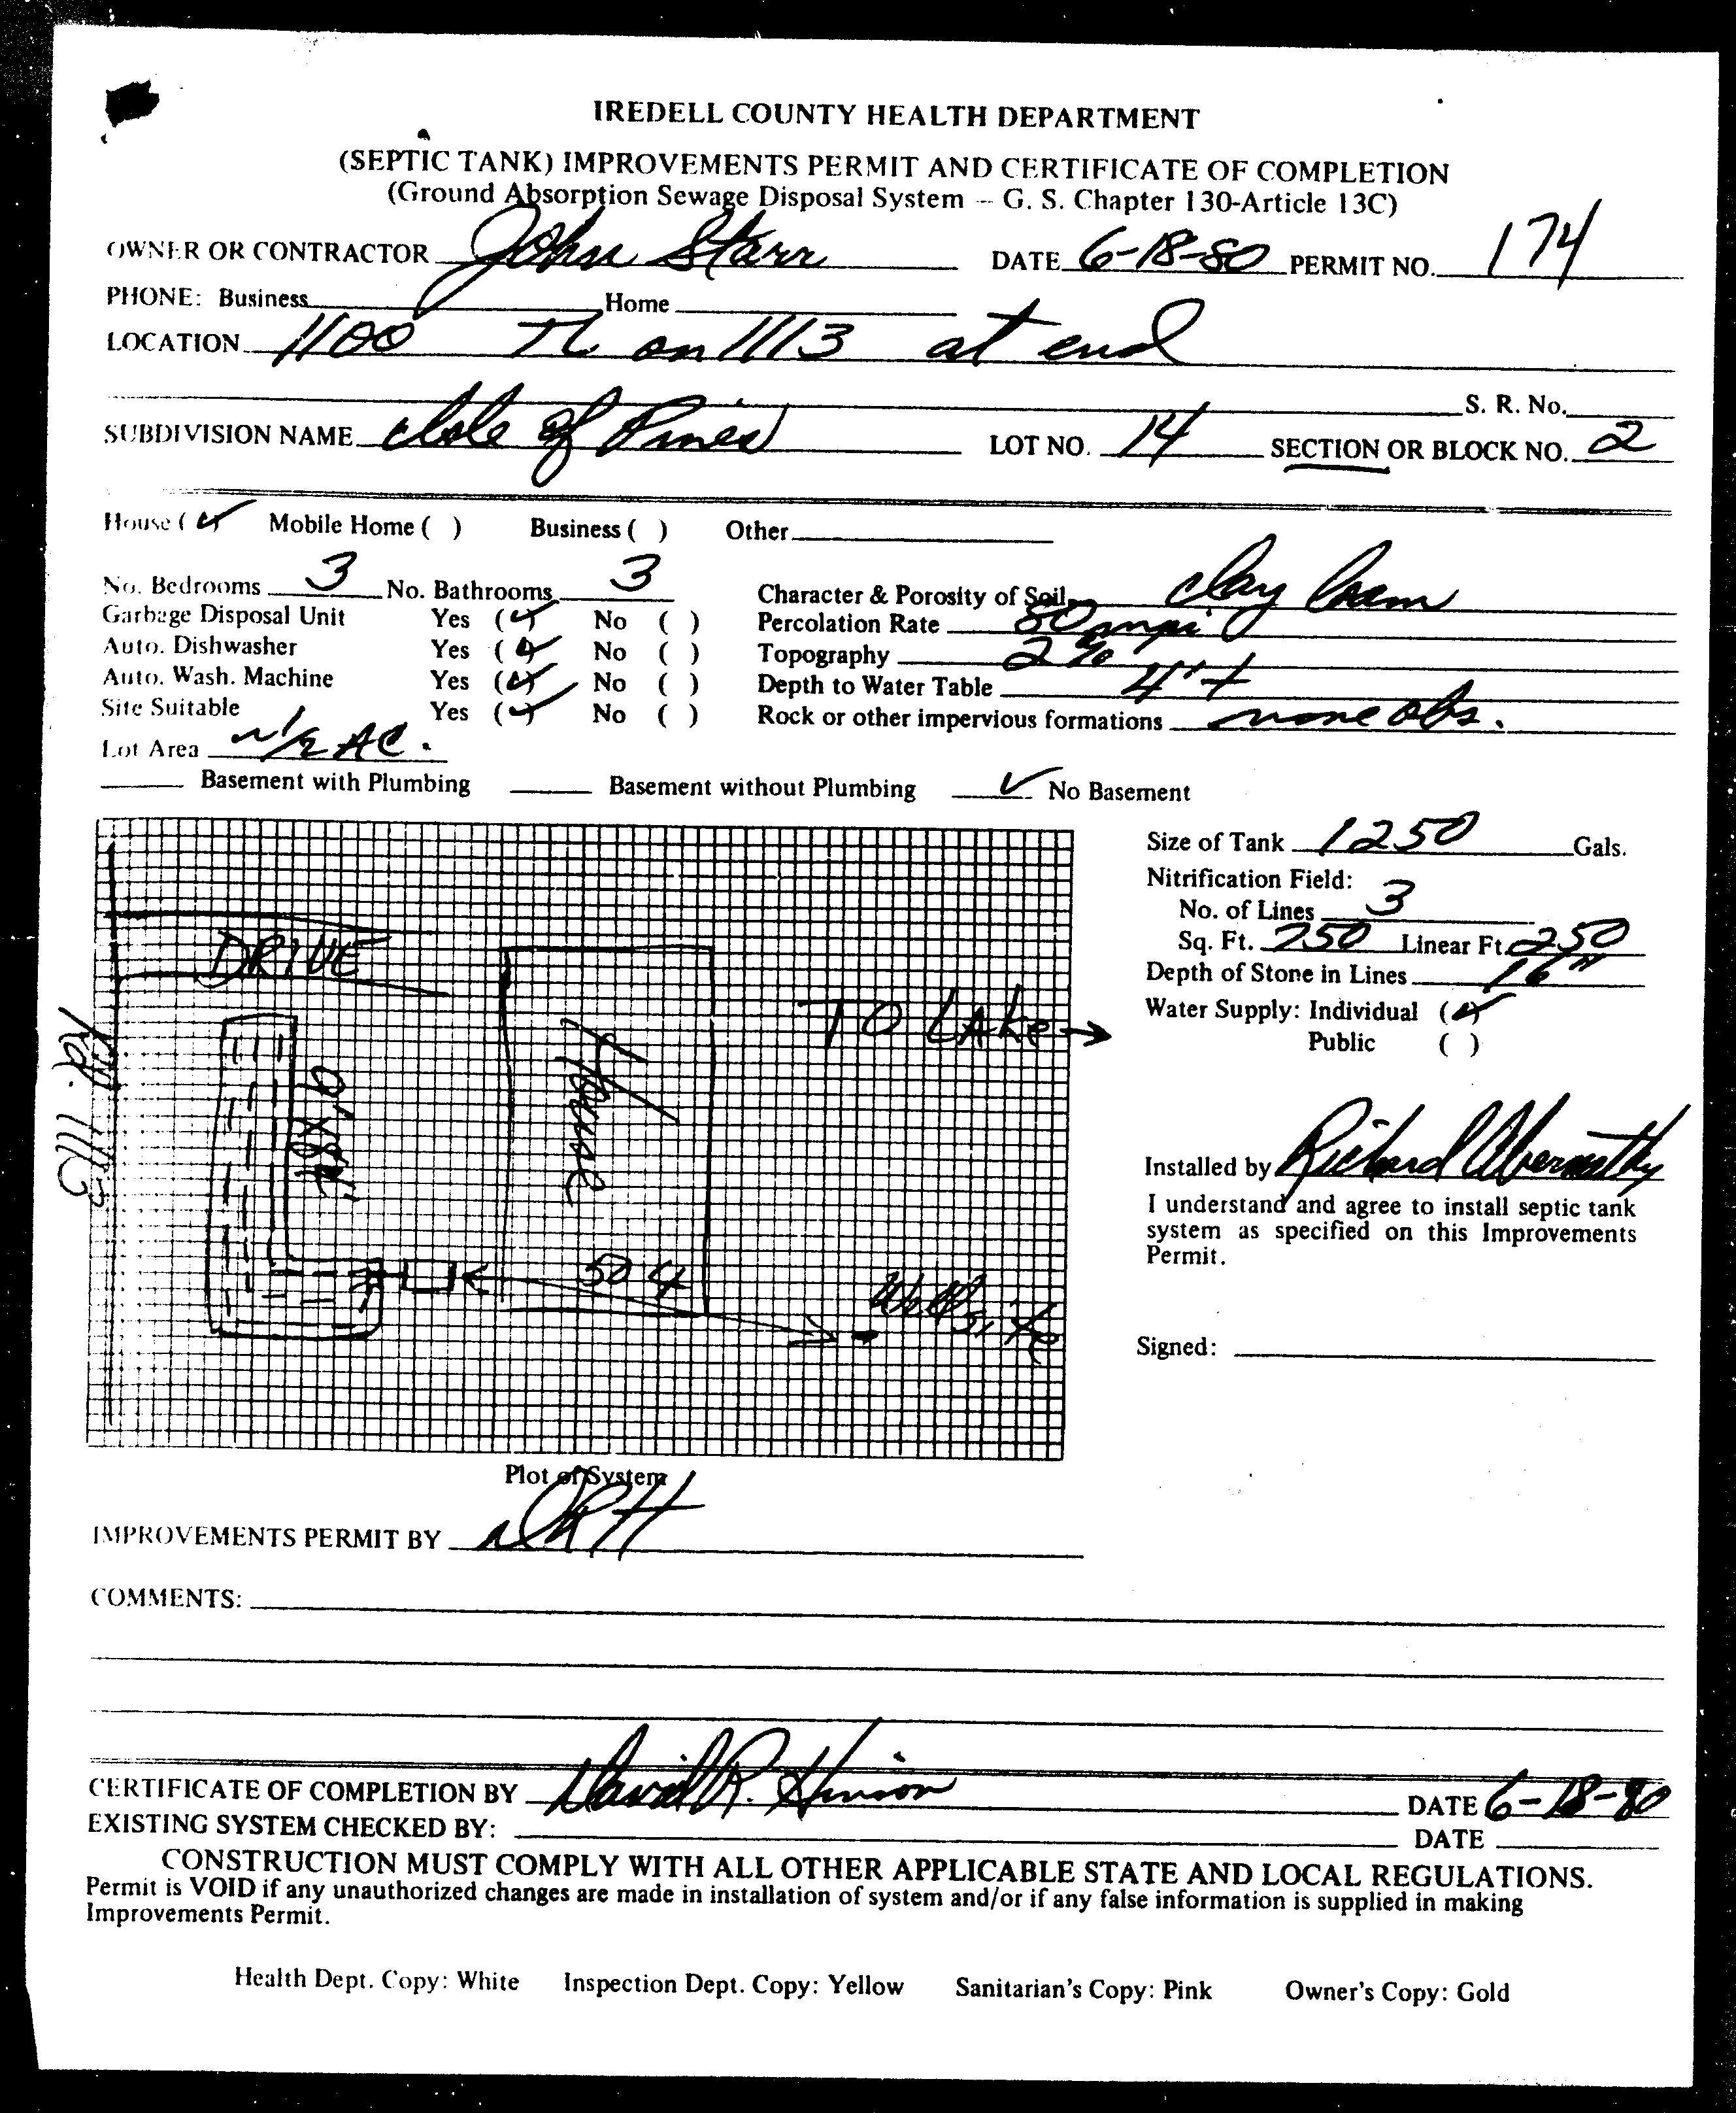 IREDELL COUNTY HEALTH DEPARTMENT
(SEPTIC TANK) IMPROVEMENTS PERMIT AND CERTIFICATE OF COMPLETION
(Ground Absorption Sewage Disposal System -- G. S. Chapter 130-Article 13C)
OWNER OR CONTRACTOR John Starr DATE 6-18-80 PERMIT NO. 174
PHONE: Business Home
LOCATION 1100 TL on 1113 at end
S. R. No.
SUBDIVISION NAME Isle of Pines LOT NO. 14 SECTION OR BLOCK NO. 2
House (✓) Mobile Home ( ) Business ( ) Other
No. Bedrooms 3 No. Bathrooms 3 Character & Porosity of Soil clay loam
Garbage Disposal Unit Yes (✓) No ( ) Percolation Rate 50 mpi
Auto. Dishwasher Yes (✓) No ( ) Topography 2%
Auto. Wash. Machine Yes (✓) No ( ) Depth to Water Table 4'+
Site Suitable Yes (✓) No ( ) Rock or other impervious formations none obs.
Lot Area ~1/2 AC.
Basement with Plumbing Basement without Plumbing ✓ No Basement
Size of Tank 1250 Gals.
Nitrification Field:
No. of Lines 3
Sq. Ft. 750 Linear Ft. 250
Depth of Stone in Lines 16"
Water Supply: Individual (✓)
Public ( )
DRIVE
TO LAKE →
House
Rd. 1113
Installed by Richard Abernathy
I understand and agree to install septic tank
system as specified on this Improvements
Permit.
Signed:
Plot of System
IMPROVEMENTS PERMIT BY DRH
COMMENTS:
CERTIFICATE OF COMPLETION BY David R. Hinson DATE 6-18-80
EXISTING SYSTEM CHECKED BY: DATE
CONSTRUCTION MUST COMPLY WITH ALL OTHER APPLICABLE STATE AND LOCAL REGULATIONS.
Permit is VOID if any unauthorized changes are made in installation of system and/or if any false information is supplied in making
Improvements Permit.
Health Dept. Copy: White Inspection Dept. Copy: Yellow Sanitarian's Copy: Pink Owner's Copy: Gold